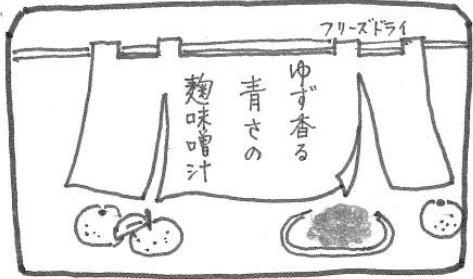 フリーズドライ
ゆず香る
青さの
麹味噌汁